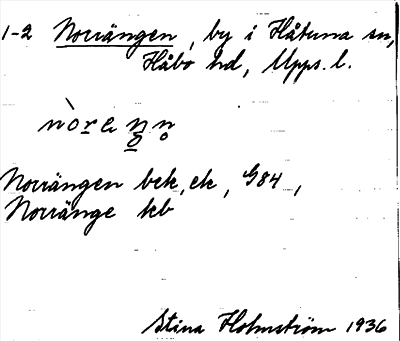 1-2 Norrängen, by i Håtuna sn,
Håbo hd, Upps. l.
Norrängen bck, ek, G84,
Norränge kb
Stina Holmström 1936